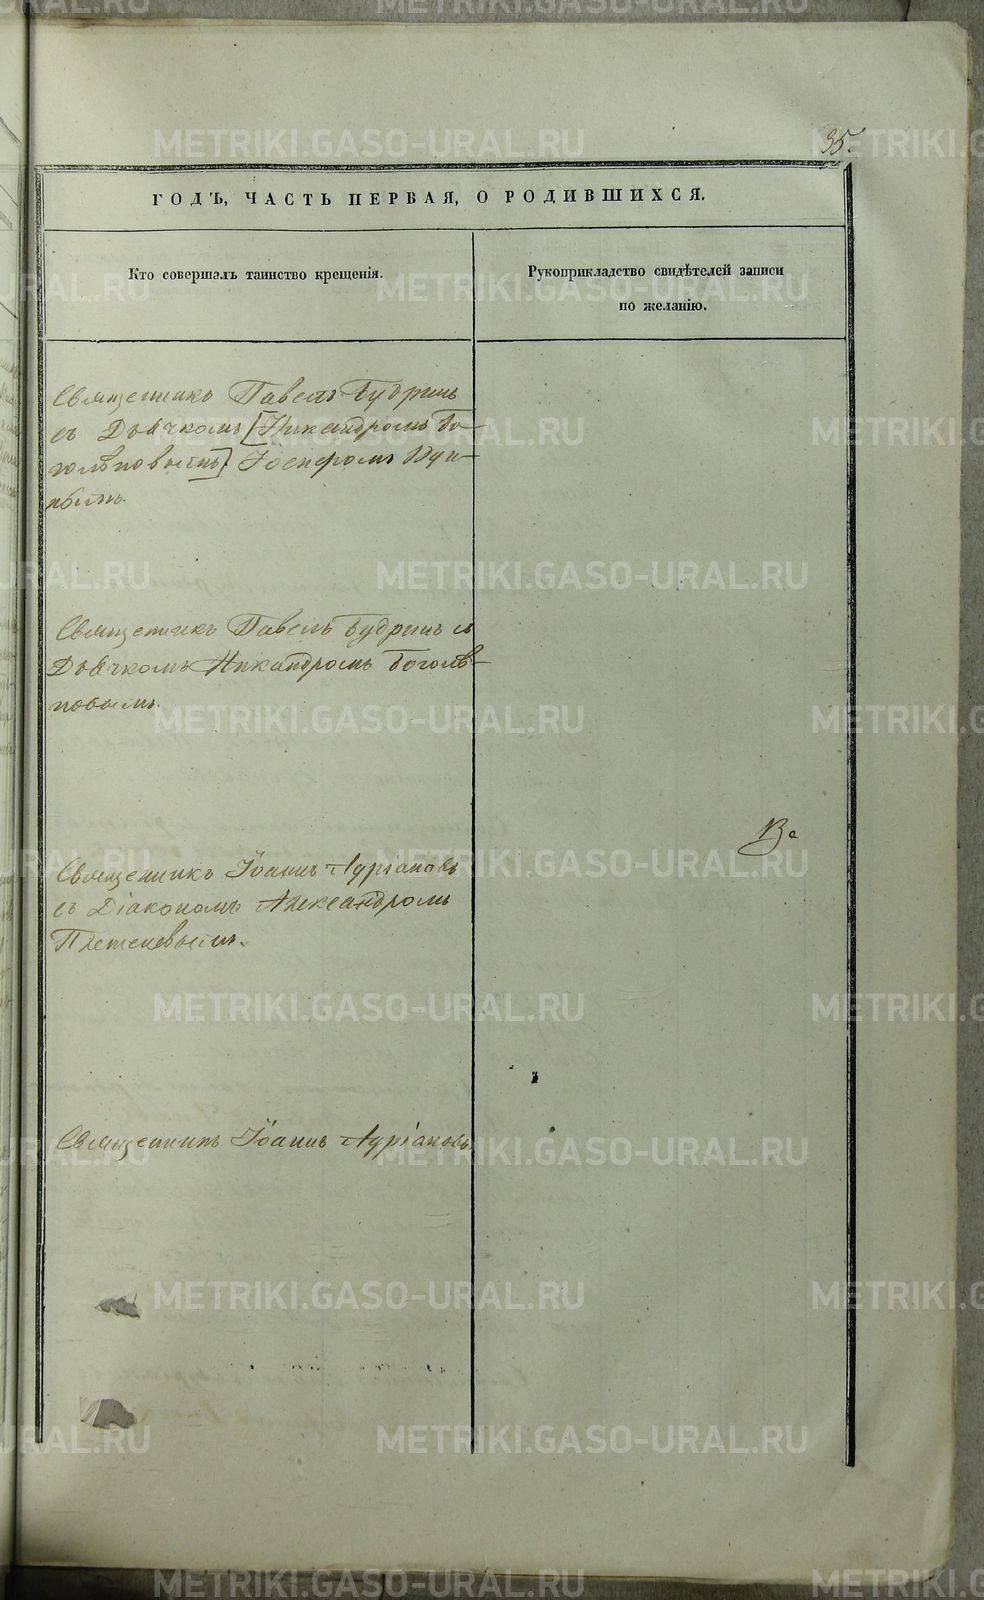 35.
ГОДЪ, ЧАСТЬ ПЕРВАЯ, О РОДИВШИХСЯ.
Кто совершалъ таинство крещенія.
Рукоприкладство свидѣтелей записи
по желанію.
Священникъ Павелъ Будринъ
съ Дьячкомъ [Никандромъ Бо-
голѣповымъ] Іосифомъ
Священникъ Павелъ Будринъ съ
Дьячкомъ Никандромъ Боголѣ-
повымъ.
Священникъ Іоаннъ Луріановъ
съ Діакономъ Александромъ
Плетеневымъ.
Священникъ Іоаннъ Луріановъ
METRIKI.GASO-URAL.RU